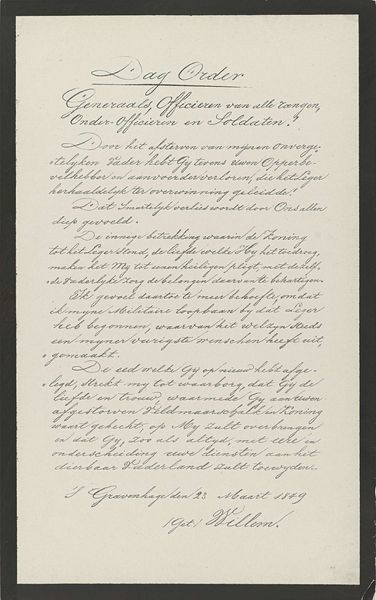 Dag Order
Generaals, Officieren van alle rangen,
Onder-Officieren en Soldaten!
Door het afsterven van mijnen onverge-
telyken Vader hebt Gy tevens uwen Opperbe-
velhebber en aanvoerder verloren, die het Leger
herhaaldelyk ter overwinning geleidde!
Dat smartelyk verlies wordt door Ons allen
diep gevoeld.
De innige betrekking waarin de Koning
tot het Leger stond, de liefde welke Hy het toedroeg,
maken het My tot eenen heiligen pligt, met dezelf-
de Vaderlyke zorg de belangen daarvan te behartigen.
Ik gevoel daartoe te meer behoefte, omdat
ik myne Militaire loopbaan by dat Leger
heb begonnen, waarvan het welzyn steeds
een myner vurigste wenschen heeft uit-
gemaakt.
De eed welke Gy op nieuw hebt afge-
legd, strekt my tot waarborg, dat Gy de
liefde en trouw, waarmede Gy aan uwen
afgestorven Veldmaarschalk en Koning
waart gehecht, op My zult overbrengen
en dat Gy, zoo als altyd, met eere en
onderscheiding uwe diensten aan het
dierbaar Vaderland zult toewyden.
'S Gravenhage den 23 Maart 1849
(Get.) Willem.